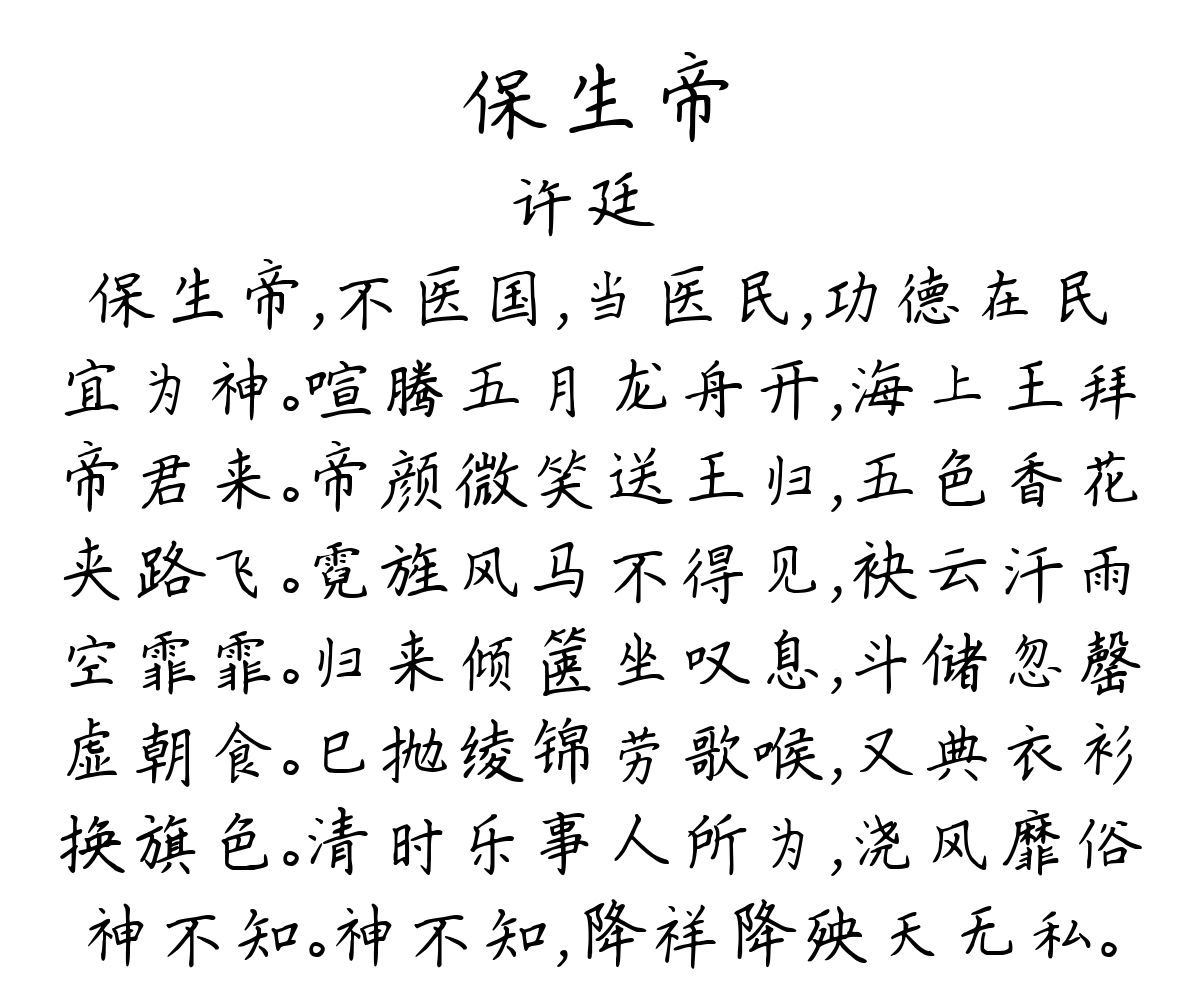 保生帝
许廷
保生帝,不医国,当医民,功德在民
宜为神。喧腾五月龙舟开,海上王拜
帝君来。帝颜微笑送王归,五色香花
夹路飞。霓旌风马不得见,袂云汗雨
空霏霏。归来倾箧坐叹息,斗储忽罄
虚朝食。已抛绫锦劳歌喉,又典衣衫
换旗色。清时乐事人所为,浇风靡俗
神不知。神不知,降祥降殃天无私。